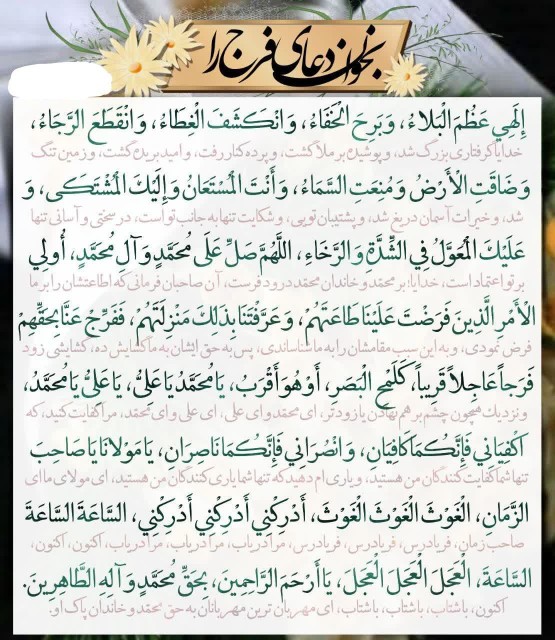 بخوان دعای فرج را
إِلَهِي عَظُمَ الْبَلاءُ، وَبَرِحَ الْخَفَاءُ، وَانْكَشَفَ الْغِطَاءُ، وَانْقَطَعَ الرَّجَاءُ،
خدایا گرفتاری بزرگ شد، و پوشیده بر ملا گشت، و پرده کنار رفت، و امید بریده گشت، و زمین تنگ
وَضَاقَتِ الْأَرْضُ وَمُنِعَتِ السَّمَاءُ، وَأَنْتَ الْمُسْتَعَانُ وَإِلَيْكَ الْمُشْتَكَى، وَ
شد، و خیرات آسمان دریغ شد، و پشتیبان تویی، و شکایت تنها به جانب تو است، در سختی و آسانی تنها
عَلَيْكَ الْمُعَوَّلُ فِي الشِّدَّةِ وَالرَّخَاءِ، اللَّهُمَّ صَلِّ عَلَى مُحَمَّدٍ وَآلِ مُحَمَّدٍ، أُولِي
بر تو اعتماد است، خدایا، بر محمد و خاندان محمد درود فرست، آن صاحبان فرمانی که اطاعتشان را بر ما
الْأَمْرِ الَّذِينَ فَرَضْتَ عَلَيْنَا طَاعَتَهُمْ، وَعَرَّفْتَنَا بِذَلِكَ مَنْزِلَتَهُمْ، فَفَرِّجْ عَنَّا بِحَقِّهِمْ
فرض نمودی، و به این سبب مقامشان را به ما شناساندی، پس به حق ایشان به ما گشایش ده، گشایشی زود
فَرَجاً عَاجِلاً قَرِيباً، كَلَمْحِ الْبَصَرِ، أَوْ هُوَ أَقْرَبُ، يَا مُحَمَّدُ يَا عَلِيُّ، يَا عَلِيُّ يَا مُحَمَّدُ،
و نزدیک همچون چشم بر هم نهادن یا زودتر، ای محمد و ای علی، ای علی و ای محمد، مرا کفایت کنید، که
اكْفِيَانِي فَإِنَّكُمَا كَافِيَانِ، وَانْصُرَانِي فَإِنَّكُمَا نَاصِرَانِ، يَا مَوْلانَا يَا صَاحِبَ
تنها شما کفایت کنندگان من هستید، و یاری ام دهید که تنها شما یاری کنندگان من هستید، ای مولای ما ای
الزَّمَانِ، الْغَوْثَ الْغَوْثَ الْغَوْثَ، أَدْرِكْنِي أَدْرِكْنِي أَدْرِكْنِي، السَّاعَةَ السَّاعَةَ
صاحب زمان، فریادرس، فریادرس، فریادرس، مرا دریاب، مرا دریاب، مرا دریاب، اکنون، اکنون،
السَّاعَةَ، الْعَجَلَ الْعَجَلَ الْعَجَلَ، يَا أَرْحَمَ الرَّاحِمِينَ، بِحَقِّ مُحَمَّدٍ وَآلِهِ الطَّاهِرِينَ.
اکنون، با شتاب، با شتاب، با شتاب، ای مهربان ترین مهربانان به حق محمد و خاندان پاک او.